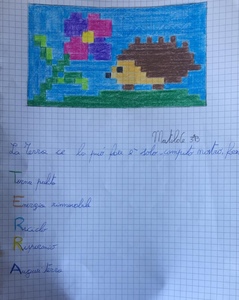 Matilde
La terra ce la può fare è solo compito nostro
Terra pulita
Energia rinnovabile
Riciclo
Risparmio
Acqua